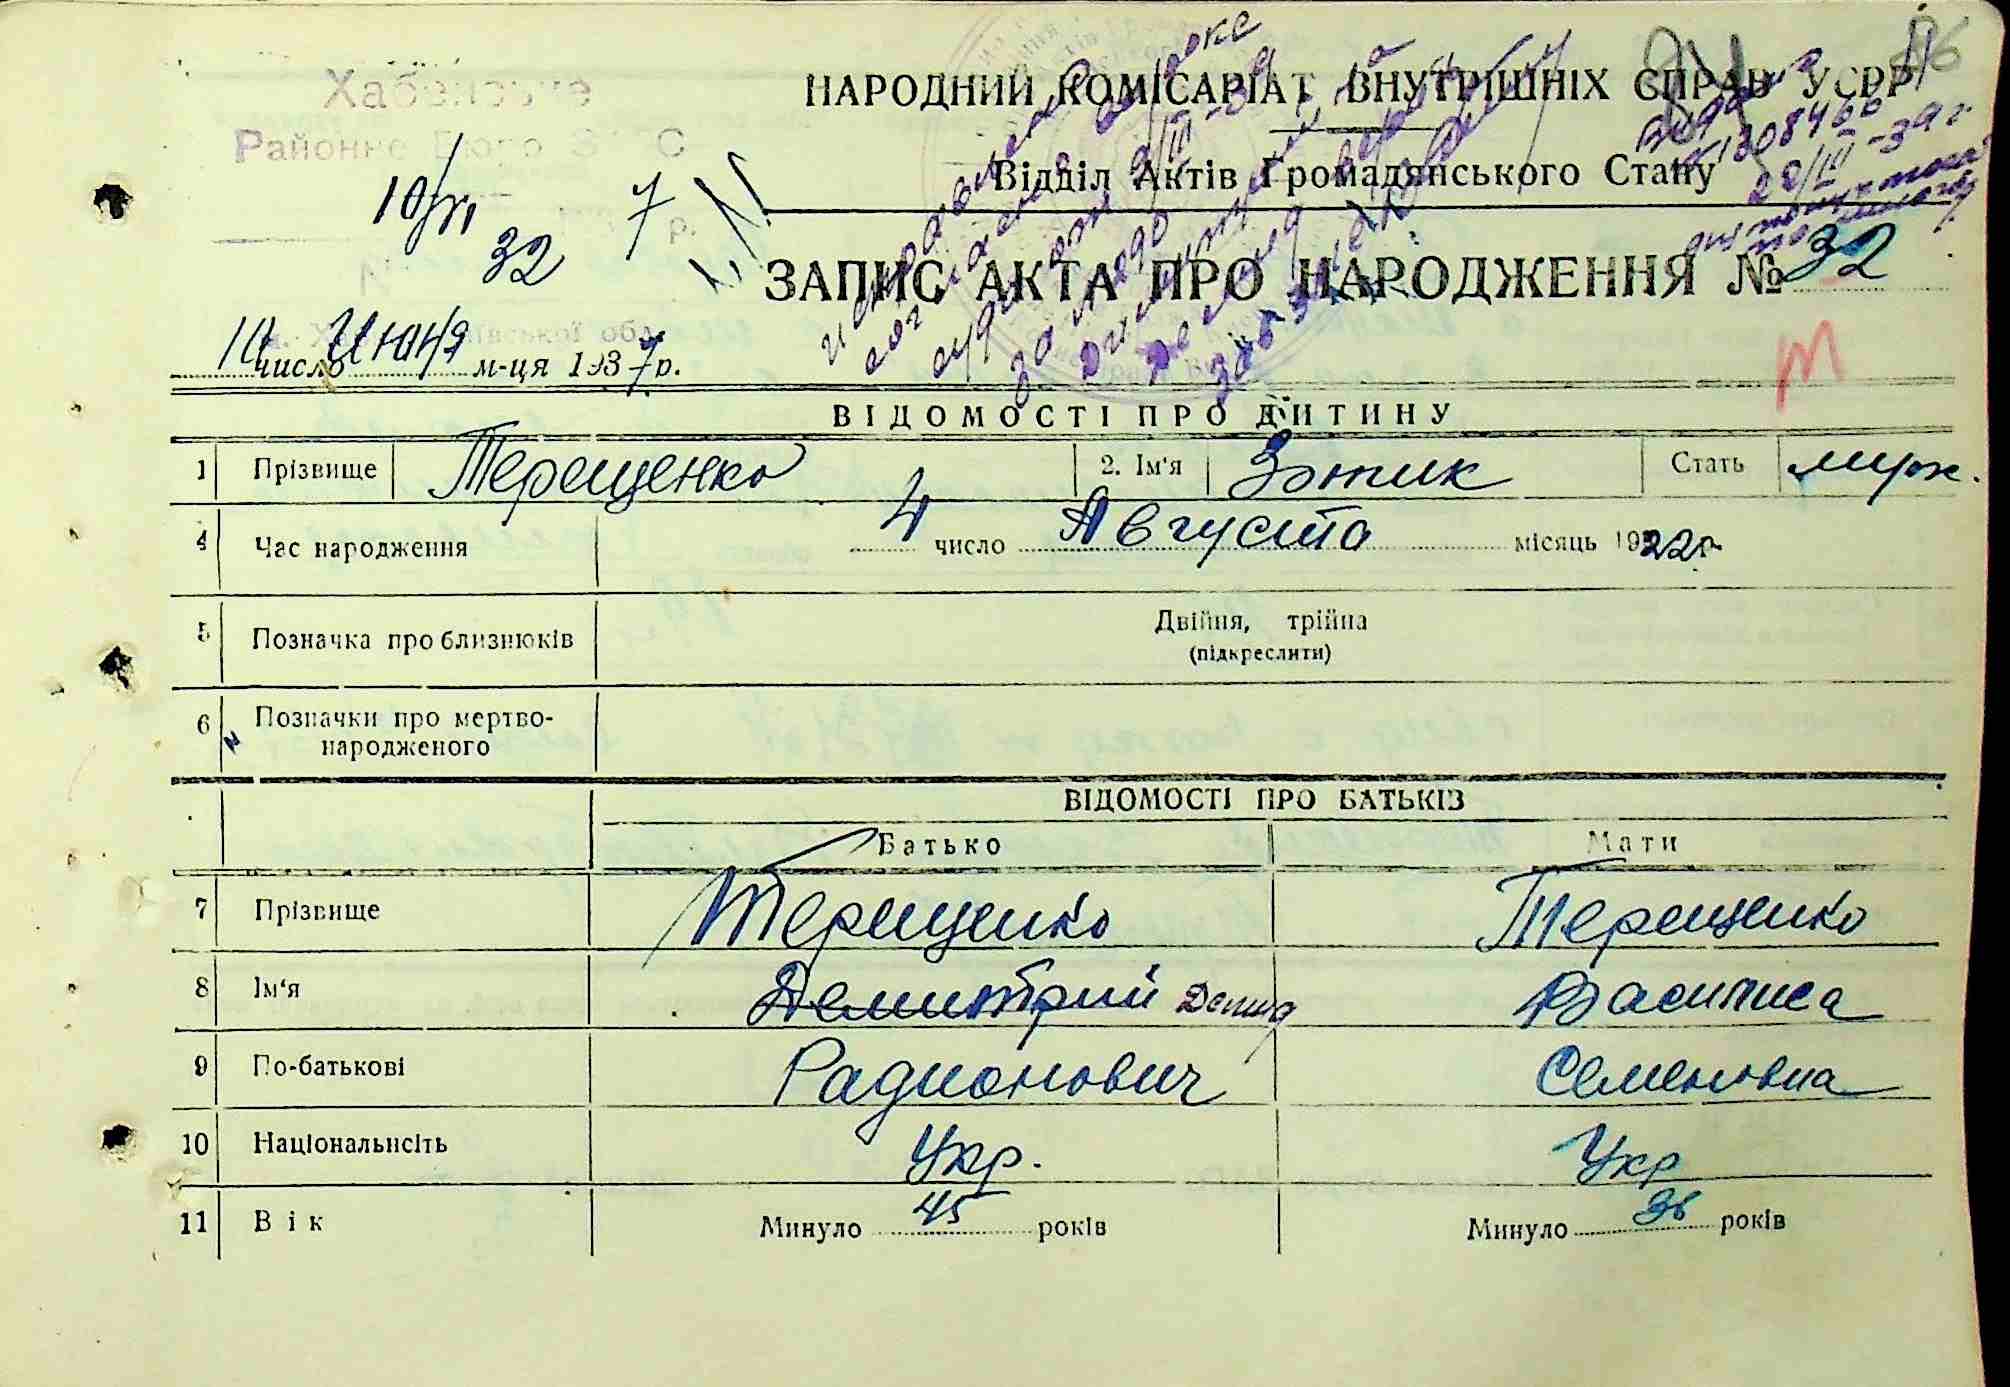 Хабенське
НАРОДНИЙ КОМІСАРІАТ ВНУТРІШНІХ СПРАВ УСРР
Районне Бюро ЗАГС
Відділ Актів Громадянського Стану
10/VI 7
32
ЗАПИС АКТА ПРО НАРОДЖЕННЯ № 32
10 число Июня м-ця 1937 р.
ВІДОМОСТІ ПРО ДИТИНУ
1 Прізвище Терещенко 2. Ім'я Зотик Стать муж.
4 Час народження 4 число Августа місяць 1922 р.
5 Позначка про близнюків Двійня, трійна
(підкреслити)
6 Позначки про мертво-
народженого
ВІДОМОСТІ ПРО БАТЬКІВ
Батько Мати
7 Прізвище Терещенко Терещенко
8 Ім'я Демитрий Демид Василиса
9 По-батькові Радионович Семеновна
10 Національнсіть Укр. Укр
11 Вік Минуло 45 років Минуло 36 років